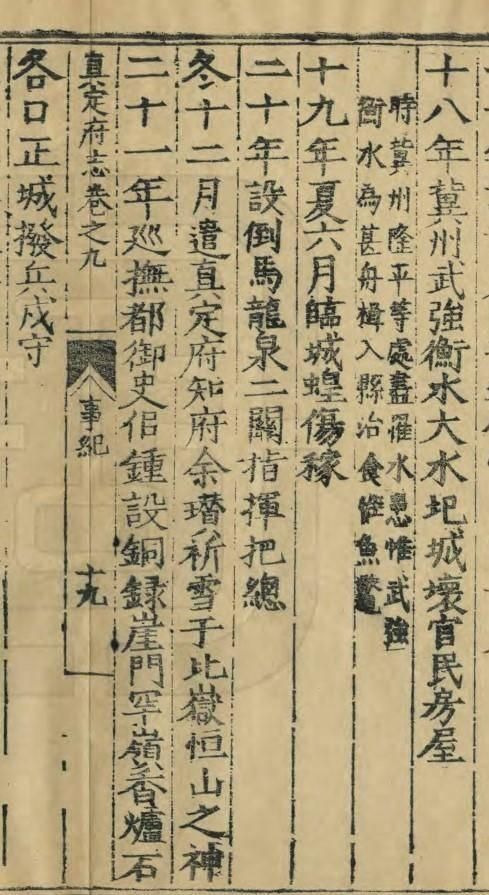 十八年冀州武強衡水大水圯城壞官民房屋
時冀州隆平等處盡罹水患惟武強
衡水為甚舟楫入縣治食皆魚鱉
十九年夏六月臨城蝗傷稼
二十年設倒馬龍泉二關指揮把總
冬十二月遣真定府知府余瓚祈雪于北嶽恒山之神
二十一年巡撫都御史侣鍾設銅録崖門罕嶺香爐石
真定府志卷之九 事紀 十九
各口正城撥兵戍守